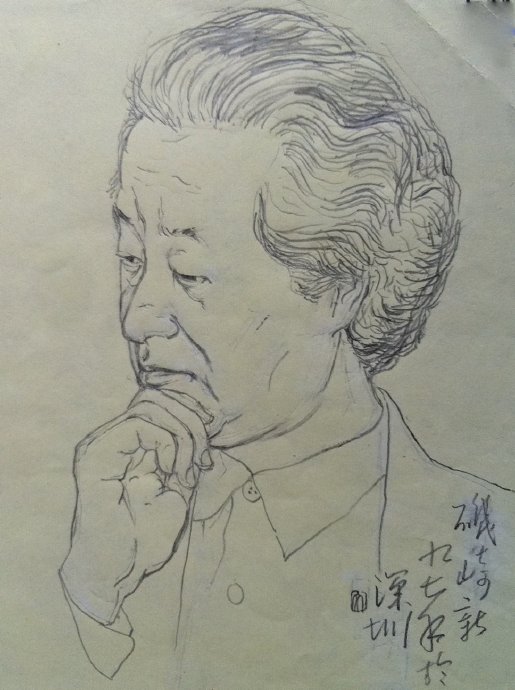 磯崎新
九七年於
深圳